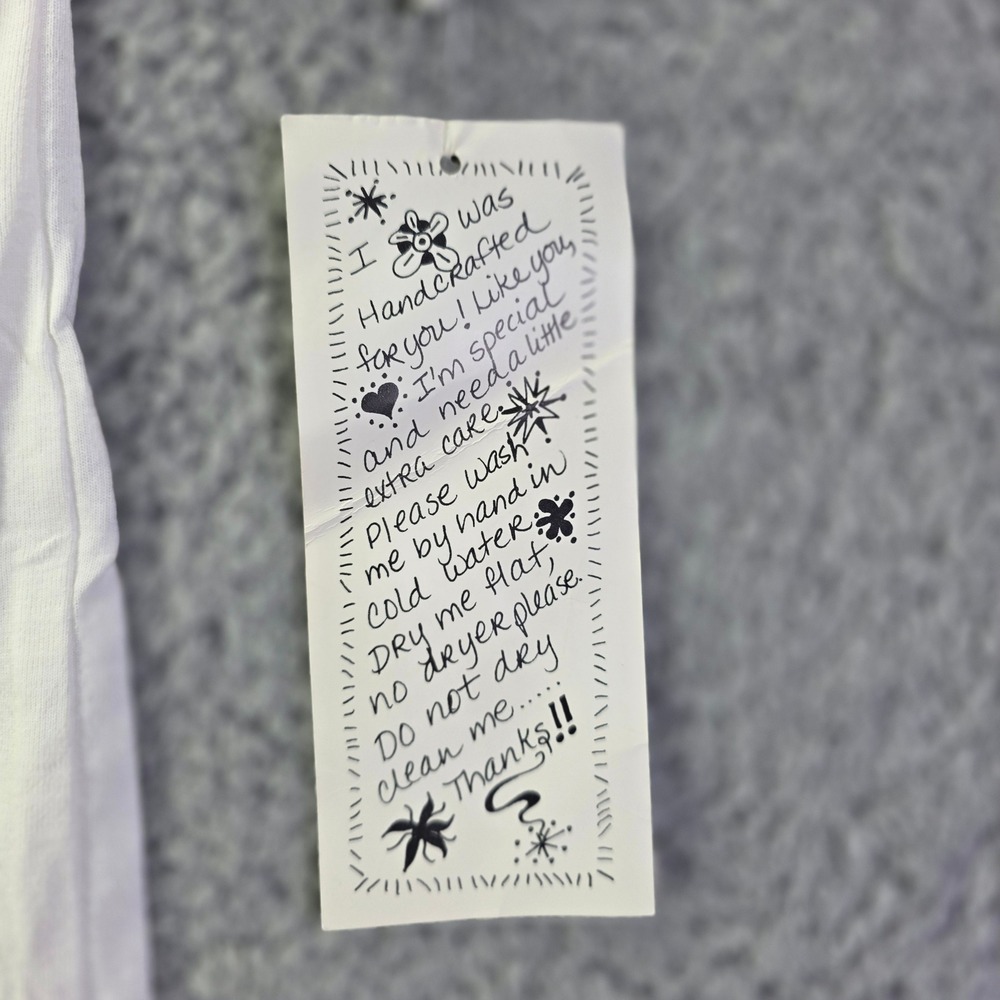 I was
Handcrafted
for you! Like you,
I'm special
and need a little
extra care.
Please wash
me by hand in
cold water.
Dry me flat,
no dryer please.
Do not dry
clean me.....
Thanks!!